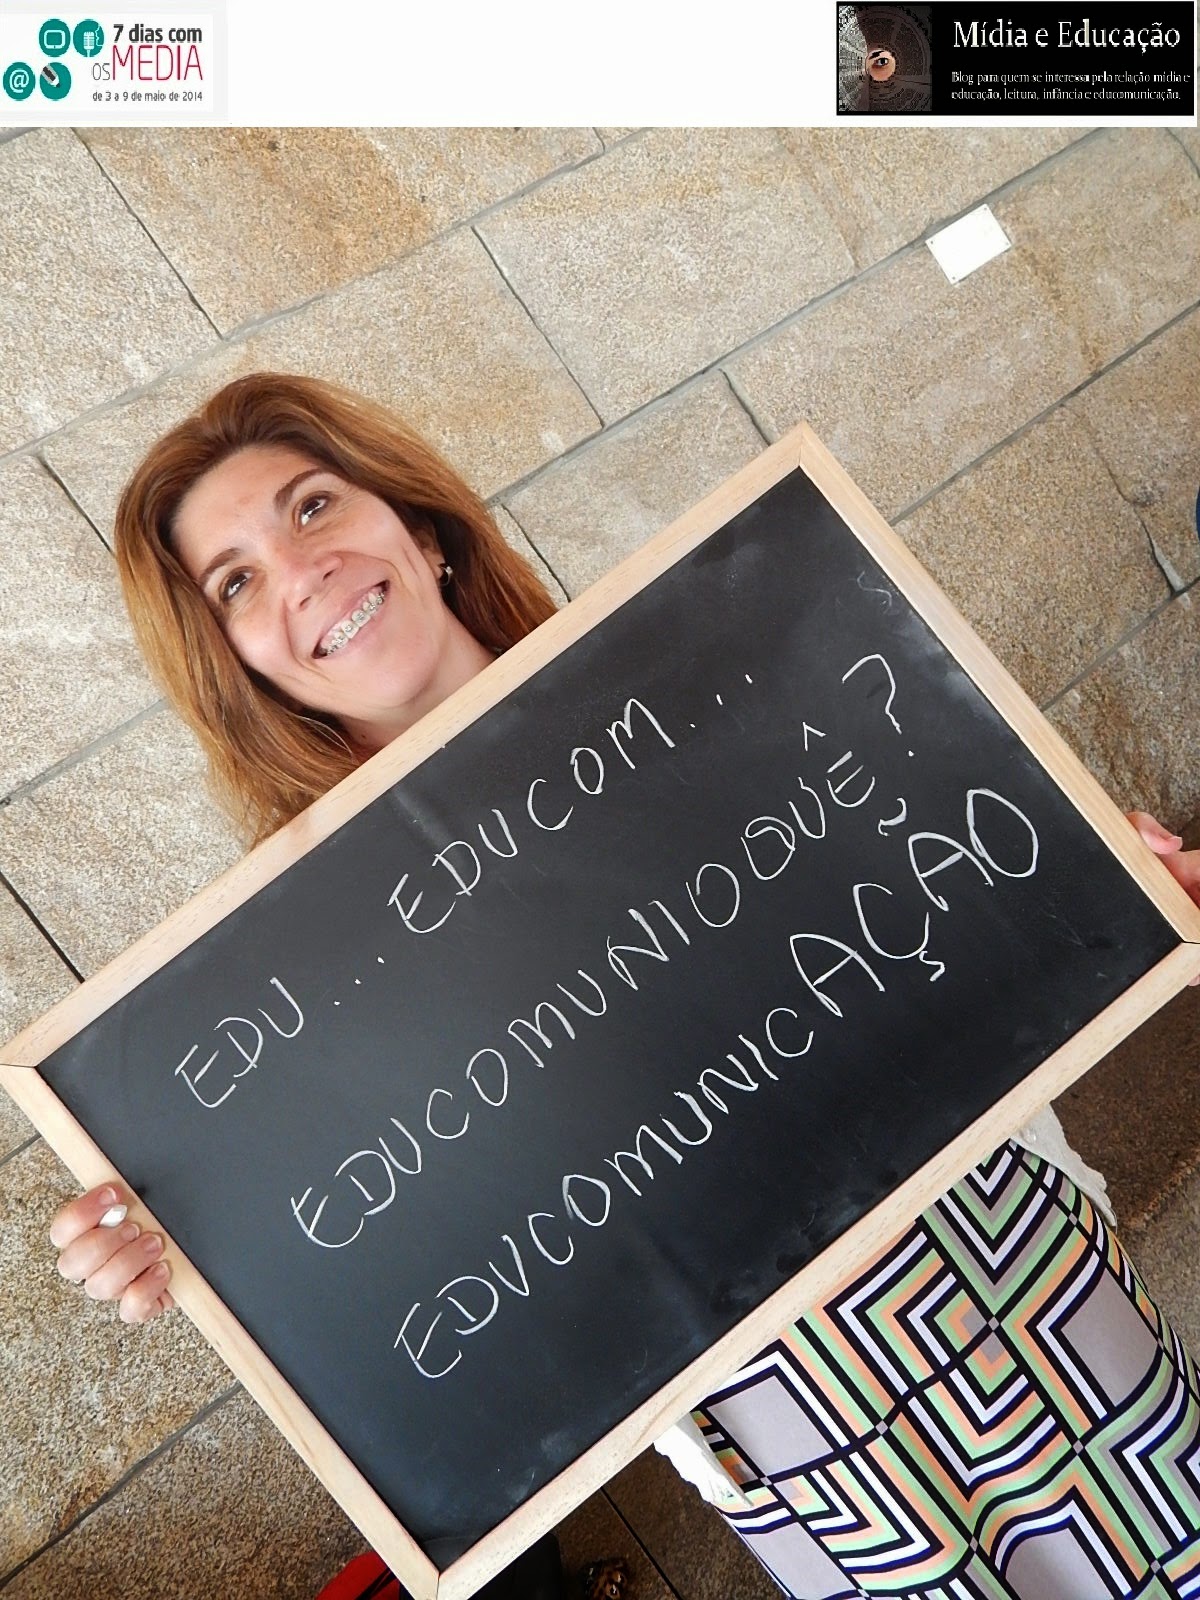 7 dias com
os MEDIA
de 3 a 9 de maio de 2014
Mídia e Educação
Blog para quem se interessa pela relação mídia e
educação, leitura, infância e educomunicação.
EDU... EDUCOM...
EDUCOMUNIOQUÊ?
EDUCOMUNICAÇÃO